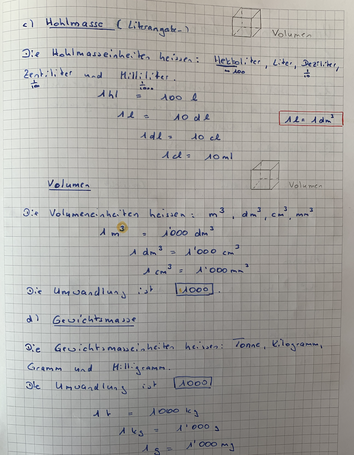 c) Hohlmasse (Literangabe)
Volumen
Die Hohlmasseinheiten heissen: Hektoliter, Liter, Deziliter,
= 100 1/10
Zentiliter und Milliliter.
1/100 1/1000
1 hl = 100 l
1 l = 10 dl
1 l = 1 dm³
1 dl = 10 cl
1 cl = 10 ml
Volumen
Volumen
Die Volumeneinheiten heissen: m³, dm³, cm³, mm³
1 m³ = 1'000 dm³
1 dm³ = 1'000 cm³
1 cm³ = 1'000 mm³
Die Umwandlung ist 1000.
d) Gewichtsmasse
Die Gewichtsmasseinheiten heissen: Tonne, Kilogramm,
Gramm und Milligramm.
Die Umwandlung ist 1000
1 t = 1000 kg
1 kg = 1'000 g
1 g = 1'000 mg